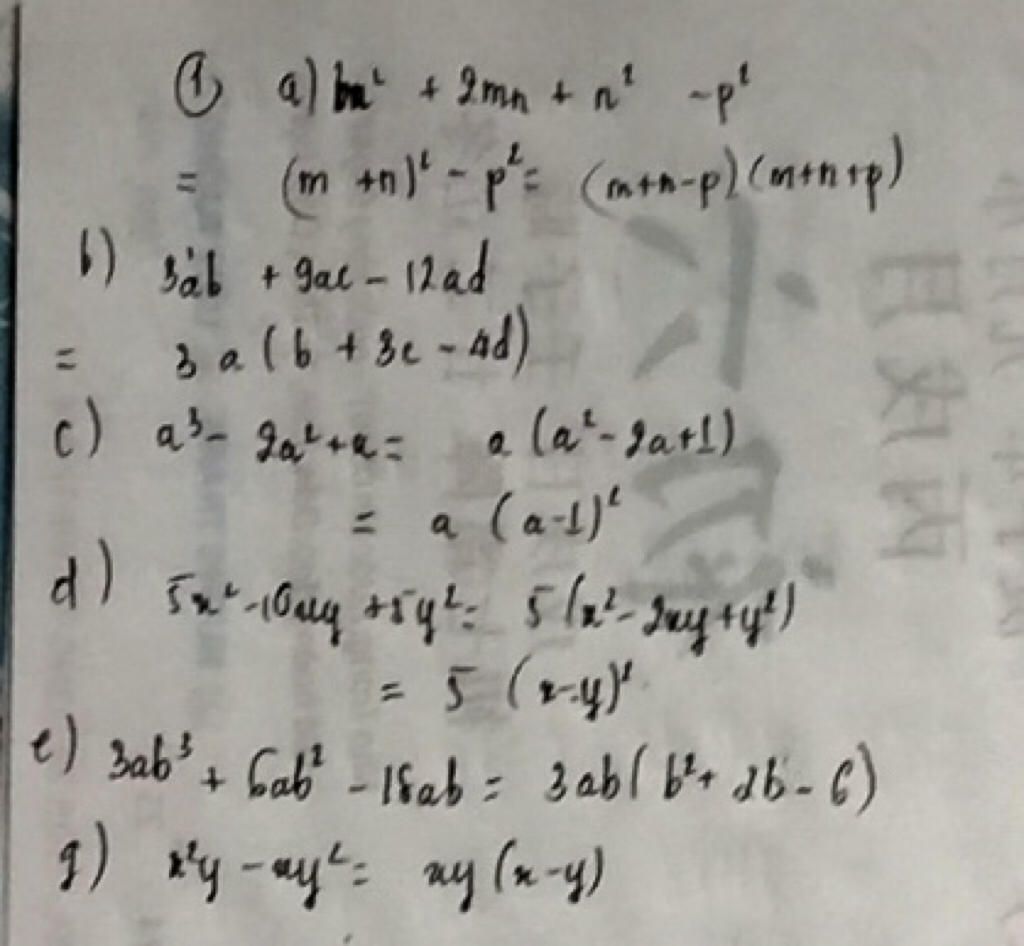 ① a) m² + 2mn + n² - p²
= (m + n)² - p² = (m+n-p)(m+n+p)
b) 3ab + 9ac - 12ad
= 3a(b + 3c - 4d)
c) a³ - 2a² + a = a(a² - 2a + 1)
= a(a-1)²
d) 5x² - 10xy + 5y² = 5(x² - 2xy + y²)
= 5(x-y)²
e) 3ab³ + 6ab² - 18ab = 3ab(b² + 2b - 6)
g) x²y - xy² = xy(x-y)